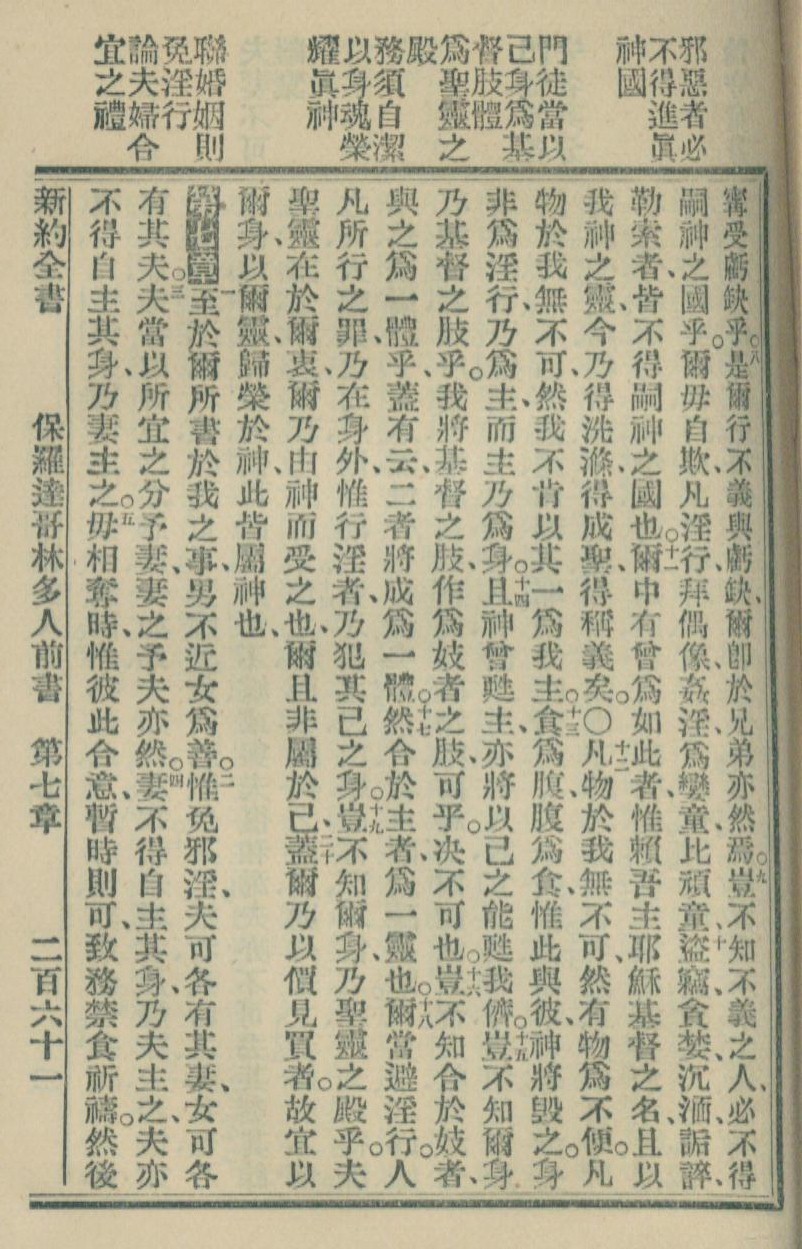 邪惡者必
不得進眞
神國
門徒當以
己身爲基
督肢體
爲聖靈之
殿
務須自潔
以身魂榮
耀眞神
聯婚姻則
免淫行
論夫婦合
宜之禮
寗受虧缺乎。八是爾行不義與虧缺、爾卽於兄弟亦然焉。九豈不知不義之人、必不得
嗣神之國乎。爾毋自欺、凡淫行、拜偶像、姦淫、爲孌童、比頑童、十盜竊、貪婪、沉湎、詬誶、
勒索者、皆不得嗣神之國也。十一爾中有曾爲如此者、惟賴吾主耶穌基督之名、且以
我神之靈、今乃得洗滌、得成聖、得稱義矣。〇十二凡物於我無不可、然有物爲不便。凡
物於我無不可、然我不肯以其一爲我主。十三食爲腹、腹爲食、惟此與彼、神將毀之。身
非爲淫行、乃爲主、而主乃爲身。十四且神曾甦主、亦將以己之能甦我儕。十五豈不知爾身
乃基督之肢乎。我將基督之肢、作爲妓者之肢、可乎。决不可也。十六豈不知合於妓者、
與之爲一體乎、蓋有云、二者將成爲一體。十七然合於主者、爲一靈也。十八爾當避淫行。人
凡所行之罪、乃在身外、惟行淫者、乃犯其己之身。十九豈不知爾身、乃聖靈之殿乎。夫
聖靈在於爾衷、爾乃由神而受之也、爾且非屬於己、二十蓋爾乃以價見買者。故宜以
爾身、以爾靈、歸榮於神、此皆屬神也、
第七章一至於爾所書於我之事、男不近女爲善。二惟免邪淫、夫可各有其妻、女可各
有其夫。三夫當以所宜之分予妻、妻之予夫亦然。四妻不得自主其身、乃夫主之、夫亦
不得自主其身、乃妻主之。五毋相奪時、惟彼此合意、暫時則可、致務禁食祈禱。然後
新約全書　保羅達哥林多人前書　第七章　二百六十一